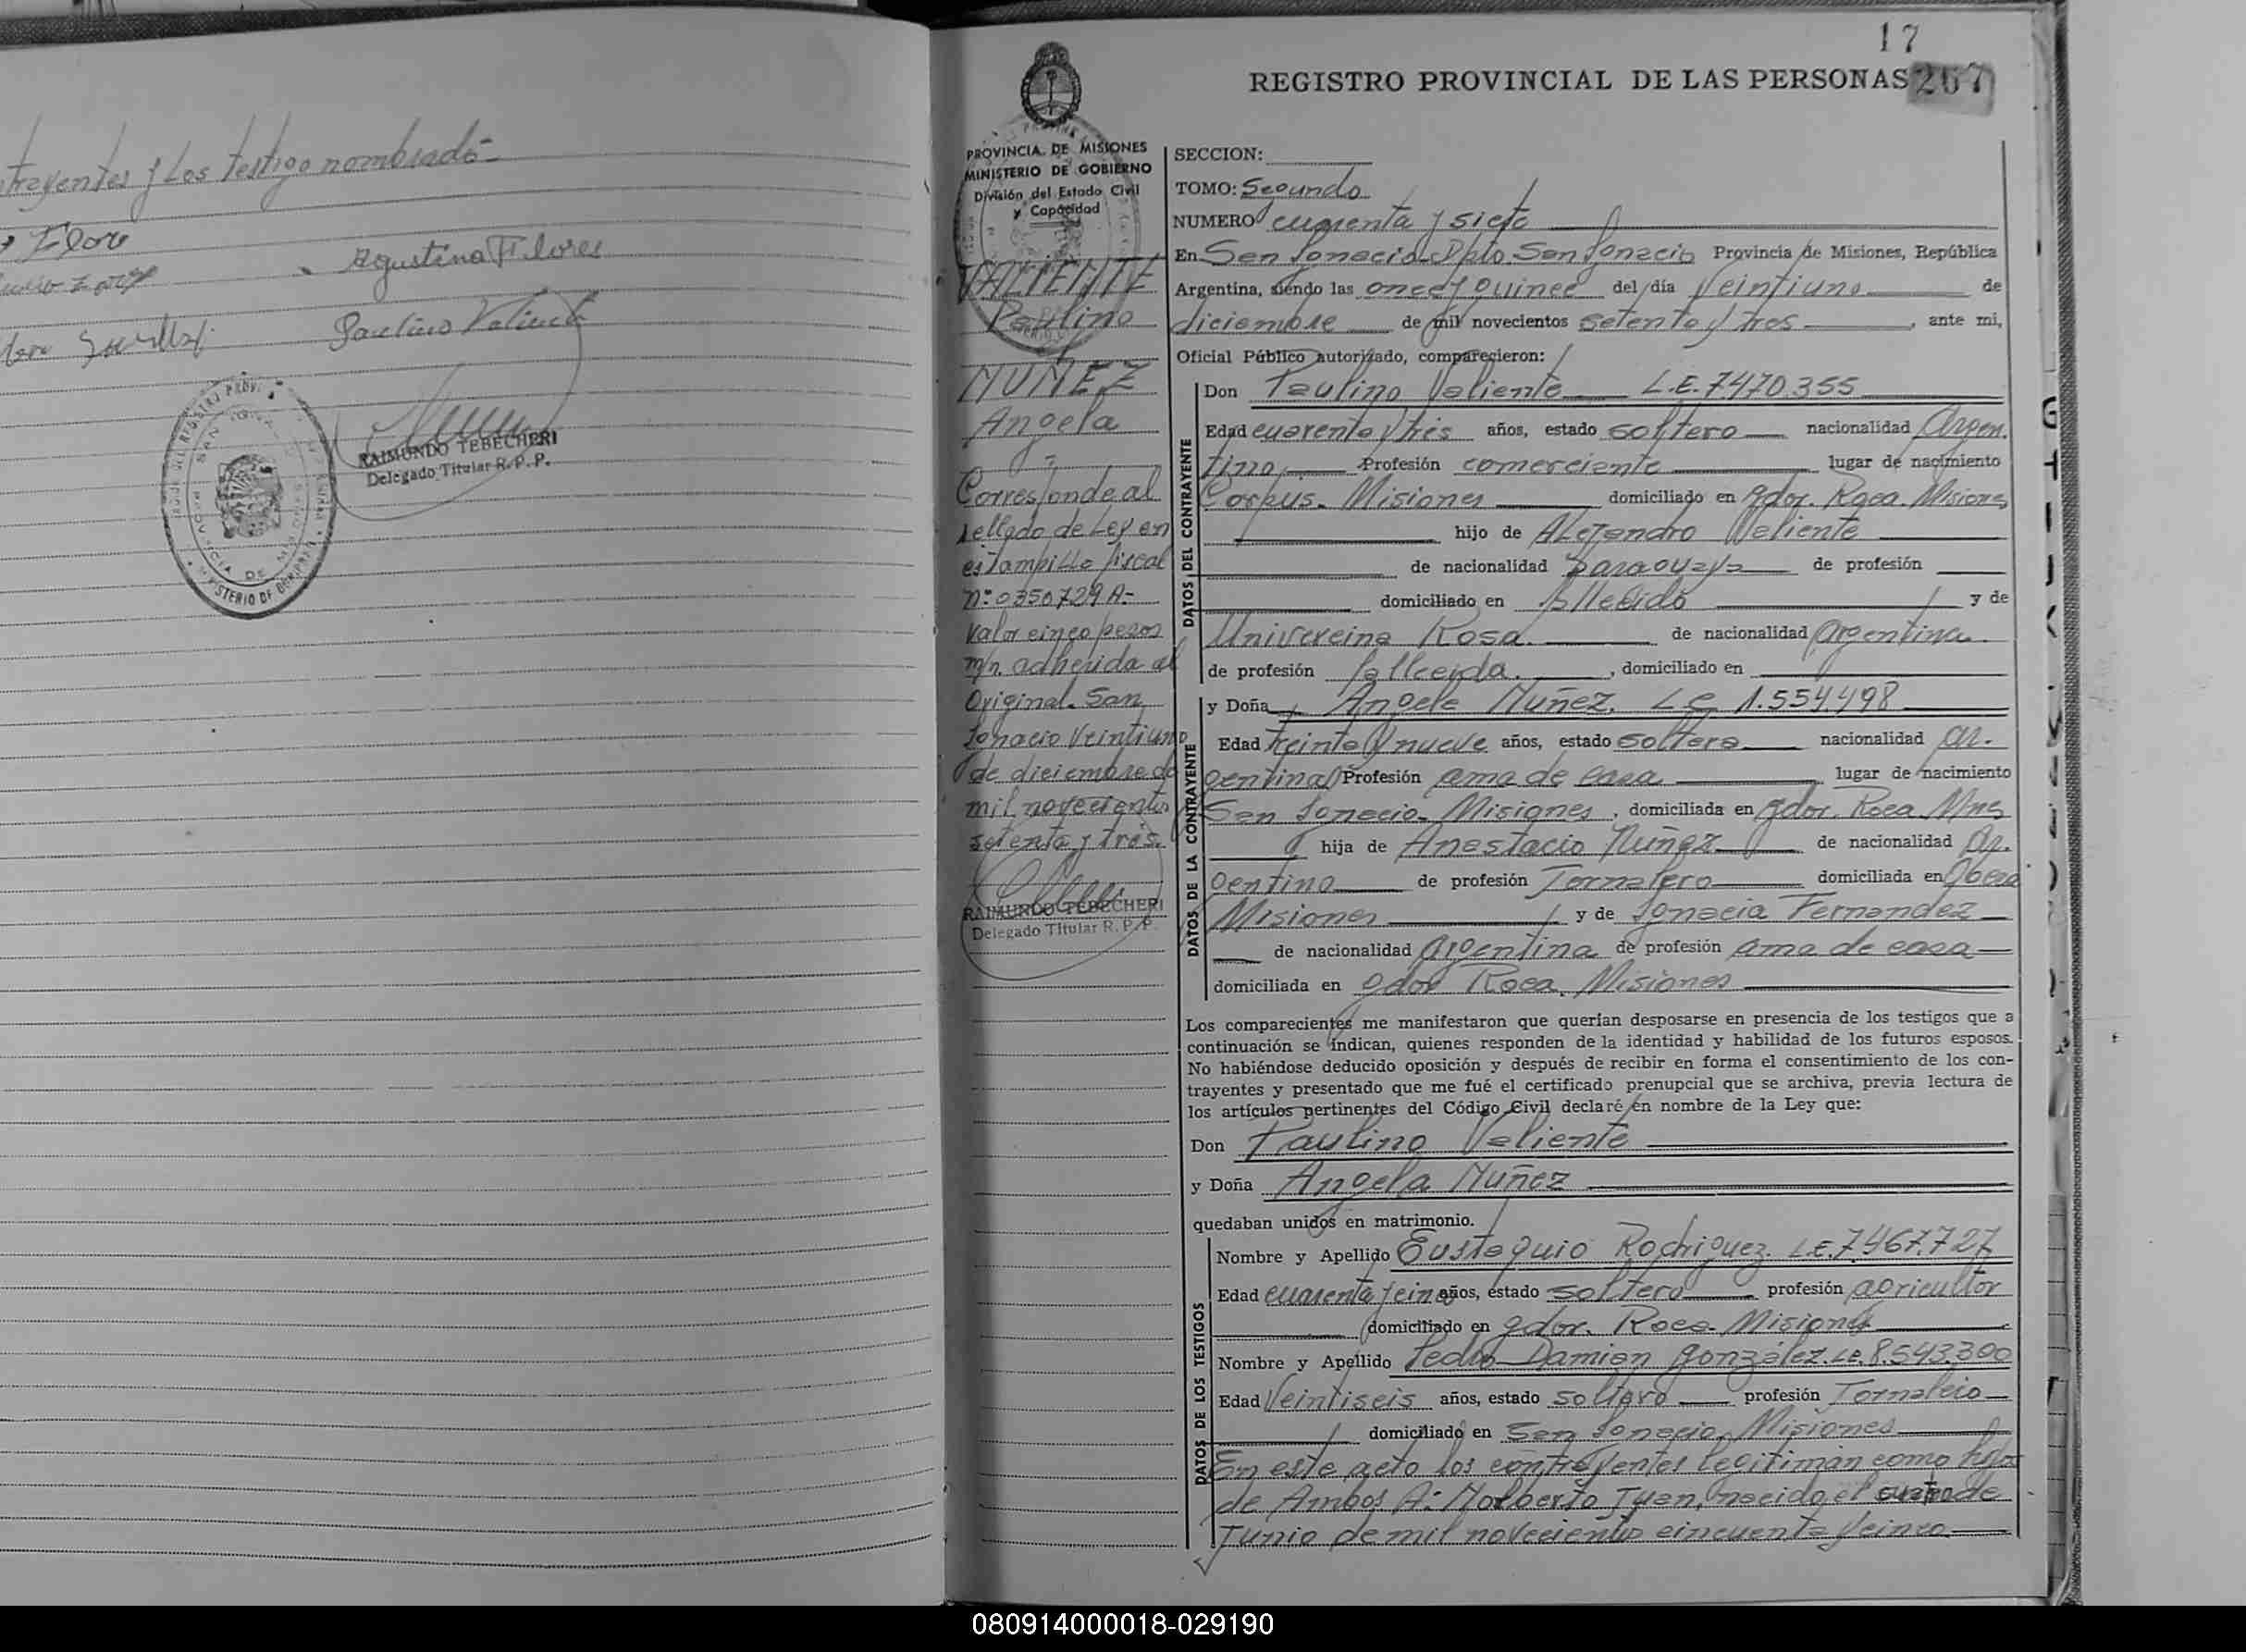 trayentes y Los testigo nombrado-
Flore
Agustina Flores
Paulino Valiente
RAIMUNDO TEBECHERI
Delegado Titular R. P. P.
17
REGISTRO PROVINCIAL DE LAS PERSONAS 267
PROVINCIA DE MISIONES
MINISTERIO DE GOBIERNO
División del Estado Civil
y Capacidad
VALIENTE
Paulino
y
NUÑEZ
Angela
Corresponde al
sellado de Ley en
estampilla fiscal
nº 0350729 A.-
Valor cinco pesos
m/n. adherida al
Original. San
Ignacio Veintiuno
de diciembre de
mil novecientos
setenta y tres.
RAIMUNDO TEBECHERI
Delegado Titular R. P. P.
SECCION:
TOMO: Segundo
NUMERO cuarenta y siete
En San Ignacio-Dpto. San Ignacio Provincia de Misiones, República
Argentina, siendo las once y quince del día Veintiuno de
diciembre de mil novecientos setenta y tres, ante mi,
Oficial Público autorizado, comparecieron:
DATOS DEL CONTRAYENTE
Don Paulino Valiente L.E. 7.470.355
Edad cuarenta y tres años, estado soltero nacionalidad Argen.
tino Profesión comerciante lugar de nacimiento
Corpus. Misiones domiciliado en gdor. Roca. Misiones
hijo de Alejandro Valiente
de nacionalidad paraguaya de profesión
domiciliado en fallecido y de
Rosa. de nacionalidad argentina
de profesión fallecida. , domiciliado en
DATOS DE LA CONTRAYENTE
y Doña Angela Nuñez. L.C 1.554.498
Edad treinta y nueve años, estado soltera nacionalidad ar.
gentina Profesión ama de casa lugar de nacimiento
San Ignacio- Misiones , domiciliada en gdor. Roca Mnes
hija de Anastacio Nuñez de nacionalidad Ar.
gentino de profesión Jornalero domiciliada en Obera
Misiones y de Ignacia Fernandez
de nacionalidad argentina de profesión ama de casa
domiciliada en gdor Roca, Misiones
Los comparecientes me manifestaron que querían desposarse en presencia de los testigos que a
continuación se indican, quienes responden de la identidad y habilidad de los futuros esposos.
No habiéndose deducido oposición y después de recibir en forma el consentimiento de los con-
trayentes y presentado que me fué el certificado prenupcial que se archiva, previa lectura de
los artículos pertinentes del Código Civil declaré en nombre de la Ley que:
Don Paulino Valiente
y Doña Angela Nuñez
quedaban unidos en matrimonio.
DATOS DE LOS TESTIGOS
Nombre y Apellido Eustaquio Rodriguez. L.E. 7.467.727
Edad cuarenta y cinco años, estado soltero profesión agricultor
domiciliado en gdor. Roca. Misiones
Nombre y Apellido Pedro Damian González. L.E. 8.543.300
Edad Veintiseis años, estado soltero profesión Jornalero
domiciliado en San Ignacio. Misiones
En este acto los contrayentes legitiman como hijos
de Ambos A: Norberto Juan, nacido el cuatro de
Junio de mil novecientos cincuenta y cinco
080914000018-029190